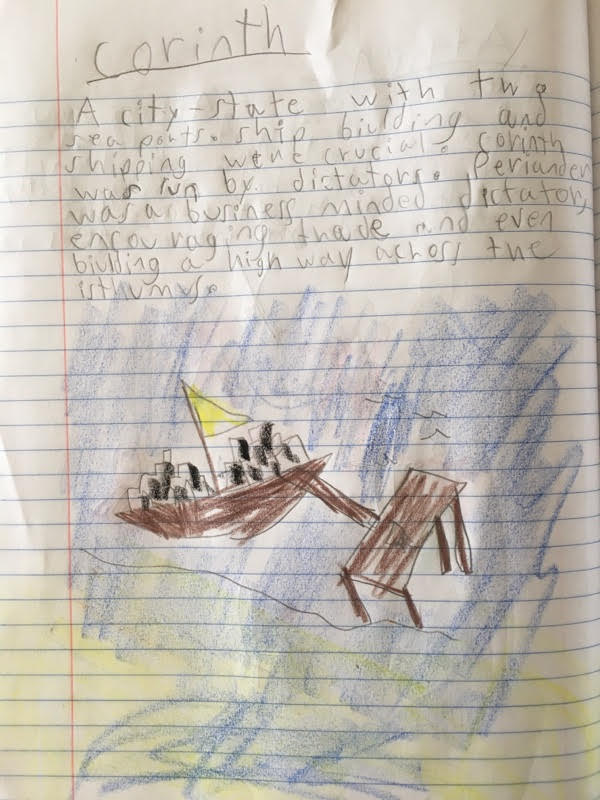 corinth
A city-state with two
sea ports. ship biulding and
shipping were crucial. corinth
was run by dictators. Periander
was a business minded dictator,
encouraging trade and even
biulding a high way across the
isthumus.